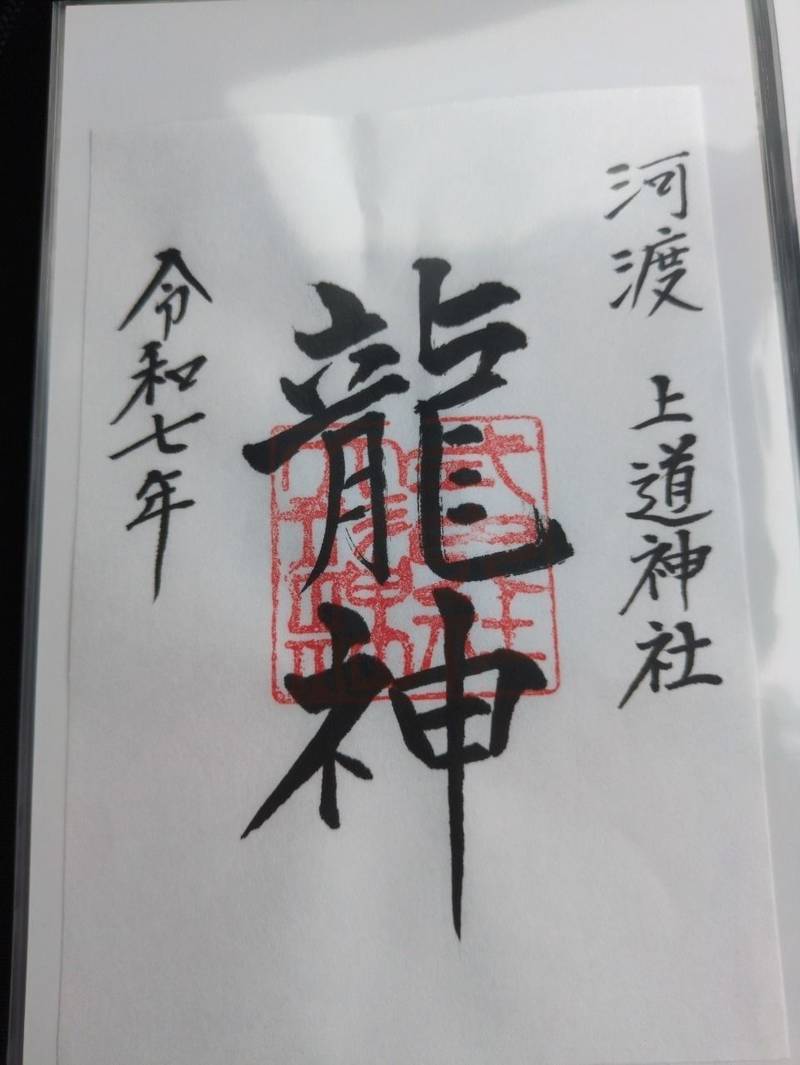 河渡 上道神社
龍神
令和七年